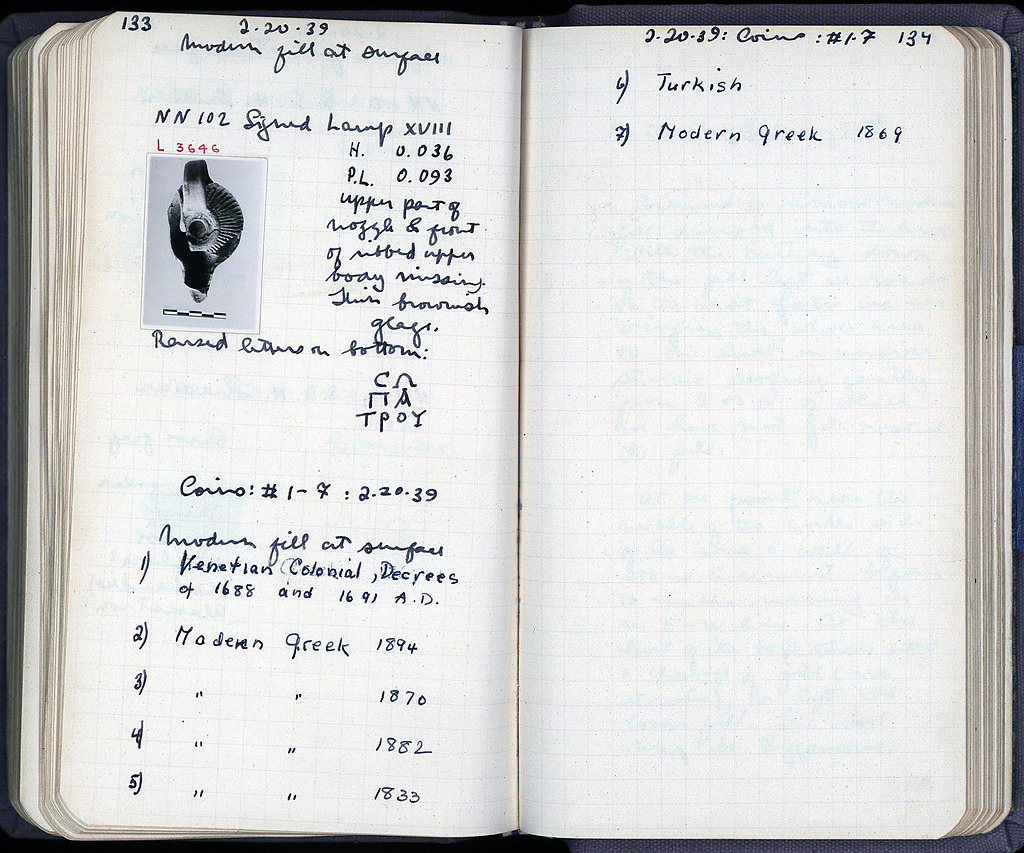 133 2-20-39
Modern fill at surface
NN 102 Signed Lamp XVIII
L 3646
H. 0.036
P.L. 0.093
upper part of
nozzle & front
of ribbed upper
body missing.
Thin brownish
glaze.
Raised letters on bottom:
CΩ
ΠΑ
ΤΡΟΥ
Coins: # 1-7 : 2.20.39
Modern fill at surface
1) Venetian Colonial, Decrees
of 1688 and 1691 A.D.
2) Modern Greek 1894
3) " " 1870
4) " " 1882
5) " " 1833
2-20-39: Coins : #1-7 134
6) Turkish
7) Modern Greek 1869